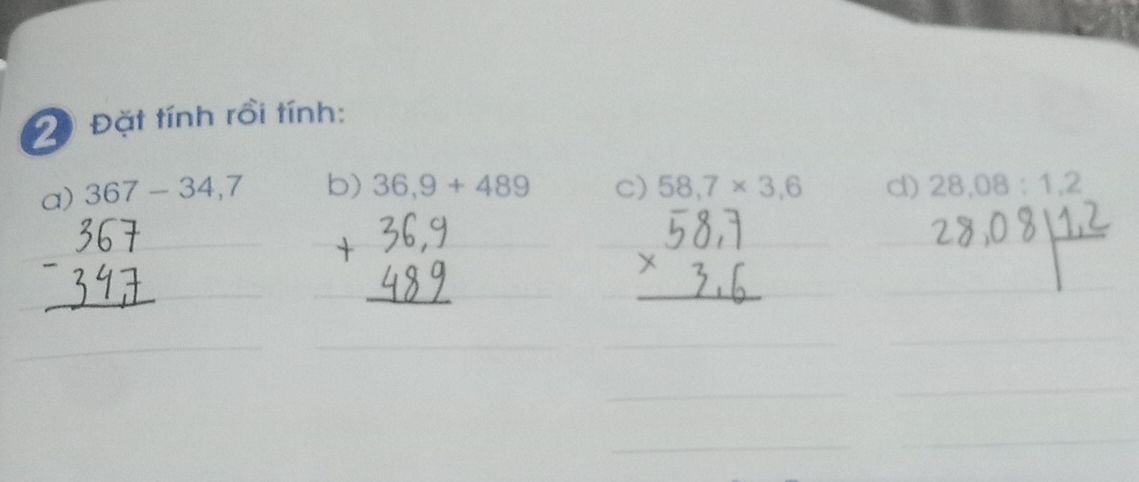 2 Đặt tính rồi tính:
a) 367 – 34,7 b) 36,9 + 489 c) 58,7 × 3,6 d) 28,08 : 1,2
367 36,9 58,7 28,08 1,2
- + ×
34,7 489 3,6